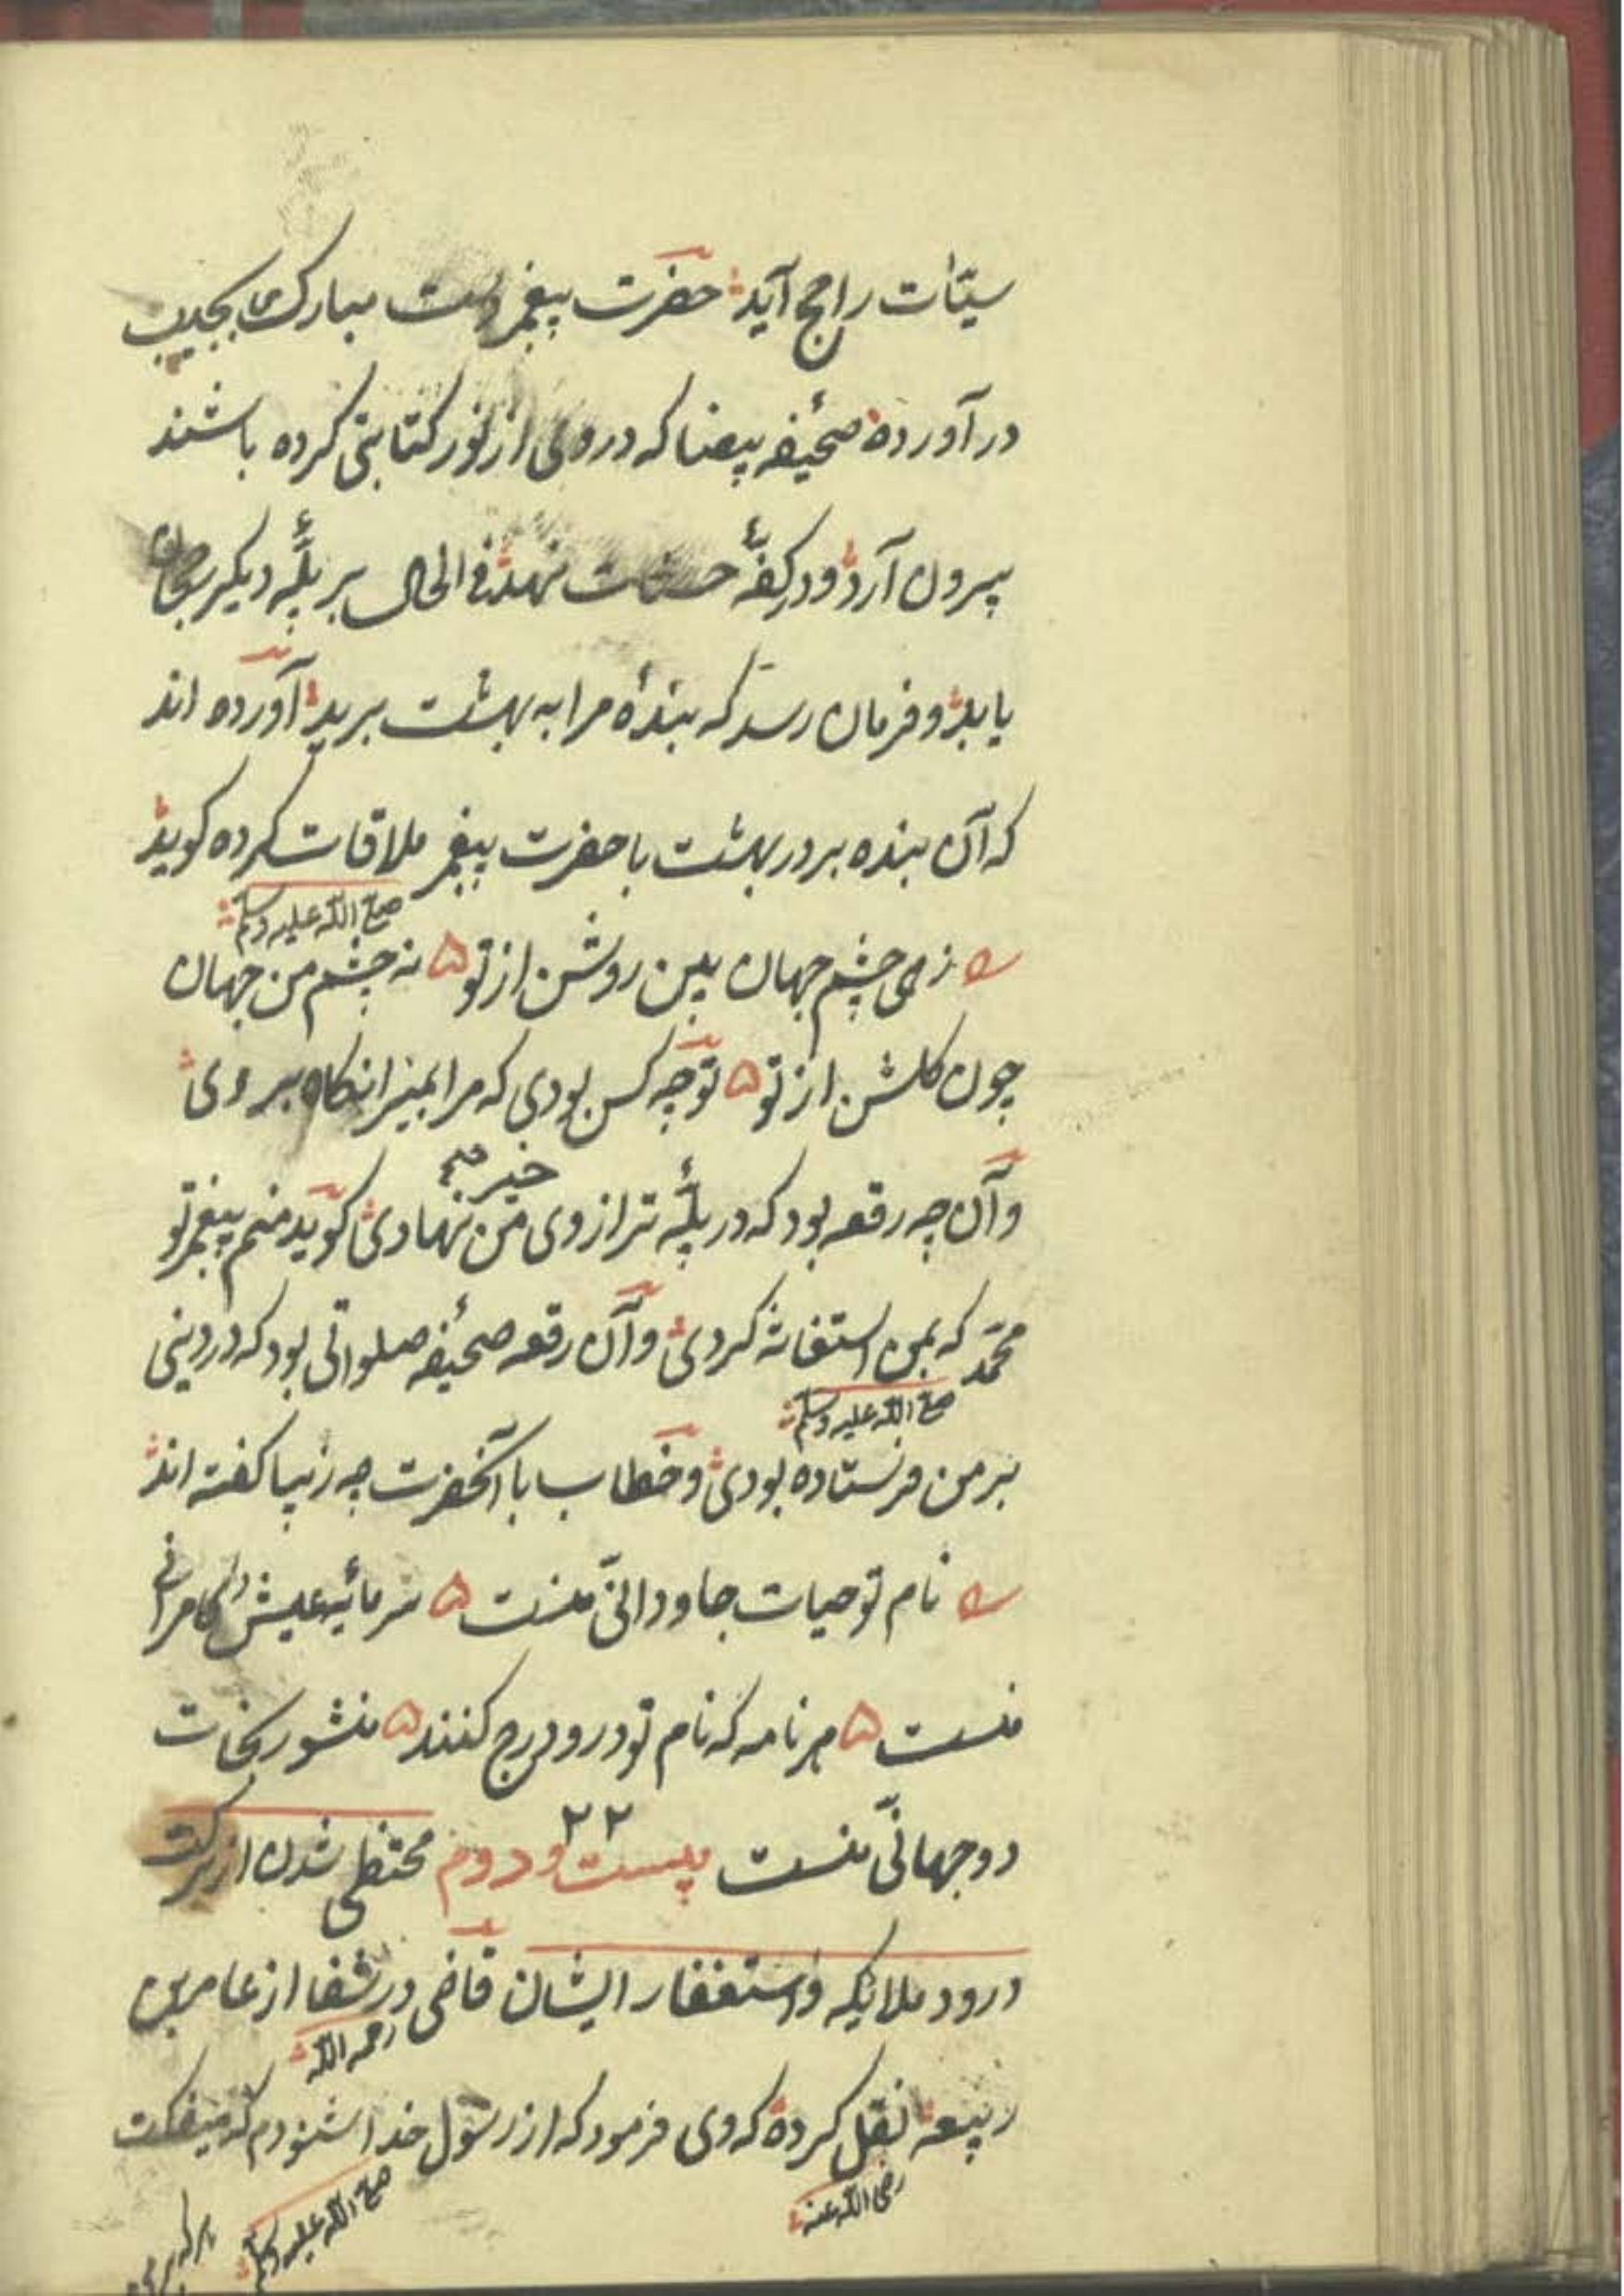 سیّئات راجح آید حضرت پیغمبر دست مبارک بجیب
در آورده صحیفه بیضا که در وی از نور کتابتی کرده باشند
بیرون آرد و در کفّهٔ حسنات نهد فی الحال بر پلّهٔ دیگر رجحان
یابد و فرمان رسد که بندهٔ مرا به بهشت برید آورده اند
که آن بنده بر در بهشت با حضرت پیغمبر ملاقات کرده کوید
صلی الله علیه وسلم
زهی چشم جهان بین روشن از تو ۵ نه چشم من جهان
چون کلشن از تو ۵ تو چه کس بودی که مرا بمیزانکاه بر وی
خیر صح
و آن چه رقعه بود که در پلّهٔ ترازوی من نهادی کوید منم پیغمبر تو
محمّد که بمن استغاثه کردی و آن رقعه صحیفه صلواتی بود که در دنیی
صلی الله علیه وسلم
بر من فرستاده بودی و خطاب با آنحضرت چه زیبا کفته اند
نام تو حیات جاودانی منست ۵ سرمایهٔ عیش و کامرانی
منست ۵ هر نامه که نام تو درو درج کنند ۵ منشور نجات
دو جهانی منست بیست و دوم ۲۲ محتظی شدن از برکت
درود ملایکه و استغفار ایشان قاضی در شفا از عامر بن
رحمه الله
ربیعه نقل کرده که وی فرمود که از رسول خدا شنودم که میفکت
رضی الله عنه
صلی الله علیه وسلم
هر که بر من